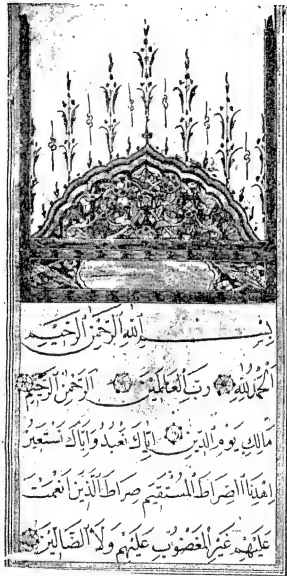 بِسْمِ اللّٰهِ الرَّحْمٰنِ الرَّحِيْمِ
اَلْحَمْدُ لِلّٰهِ رَبِّ الْعَالَمِيْنَ اَلرَّحْمٰنِ الرَّحِيْمِ
مَالِكِ يَوْمِ الدِّيْنِ اِيَّاكَ نَعْبُدُ وَاِيَّاكَ نَسْتَعِيْنُ
اِهْدِنَا الصِّرَاطَ الْمُسْتَقِيْمَ صِرَاطَ الَّذِيْنَ اَنْعَمْتَ
عَلَيْهِمْ غَيْرِ الْمَغْضُوْبِ عَلَيْهِمْ وَلَا الضَّالِّيْنَ